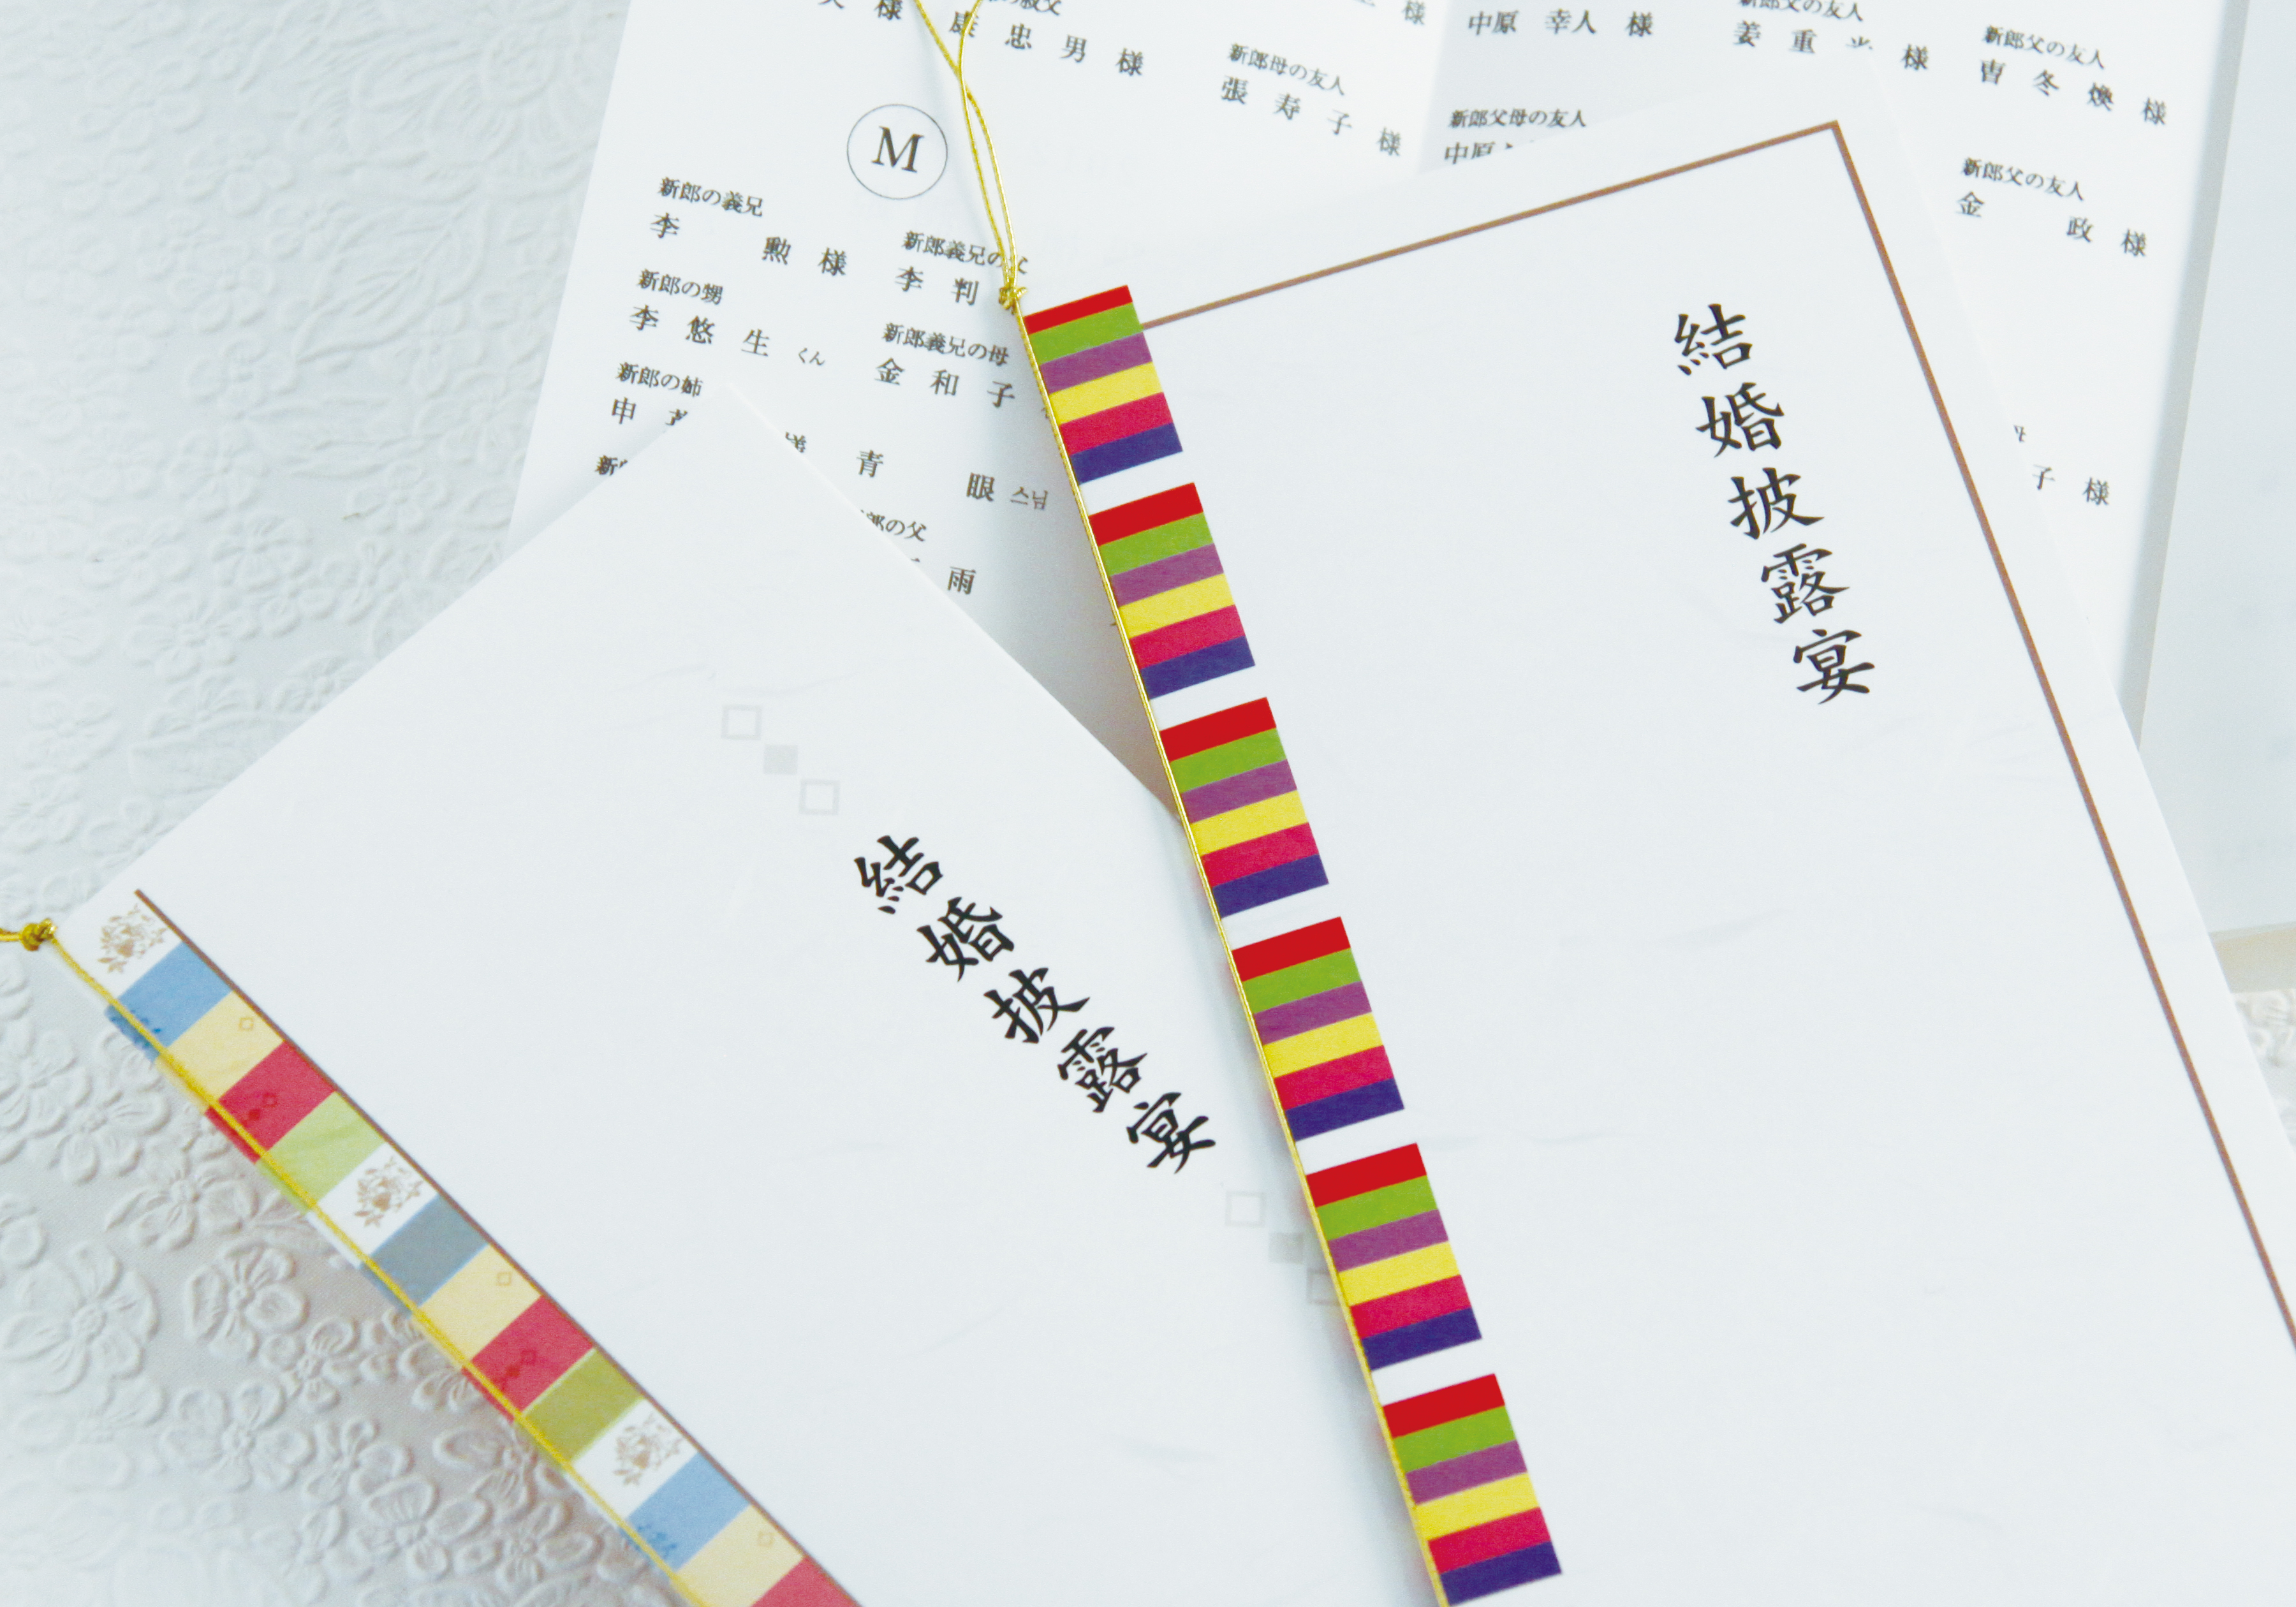 様
忠男様
新郎母の友人
張寿子様
様
中原 幸人 様
新郎父の友人
姜重 様
新郎父の友人
曺冬煥様
新郎父母の友人
中原
新郎父の友人
金 政様
子様
M
新郎の義兄
李 勲様
新郎の甥
李悠生くん
新郎の姉
申
新郎義兄の父
李判
新郎義兄の母
金和子
様
青 眼 스님
郎の父
雨
結婚披露宴
結婚披露宴